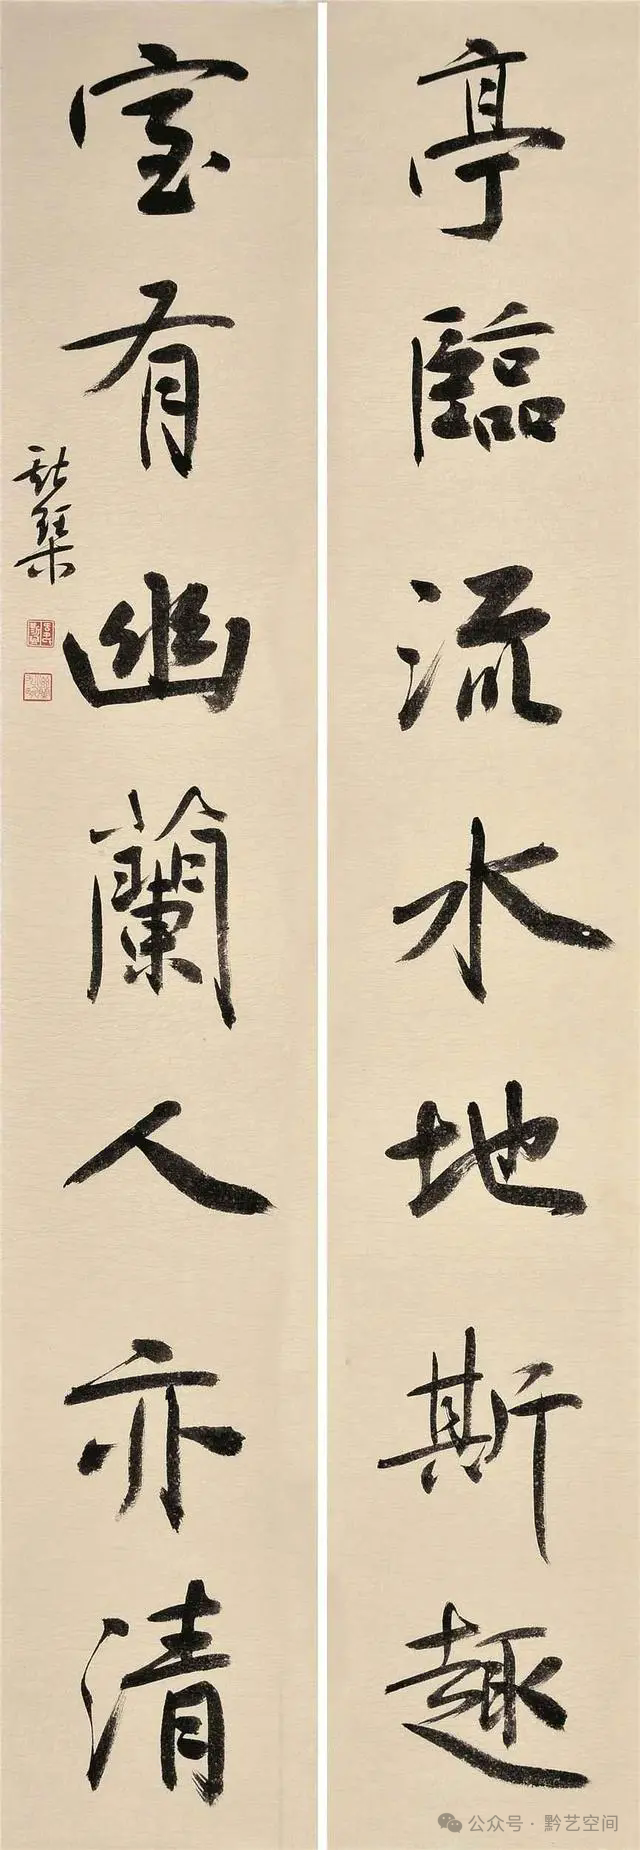 亭臨流水地斯趣
室有幽蘭人亦清
公众号 · 黔艺空间